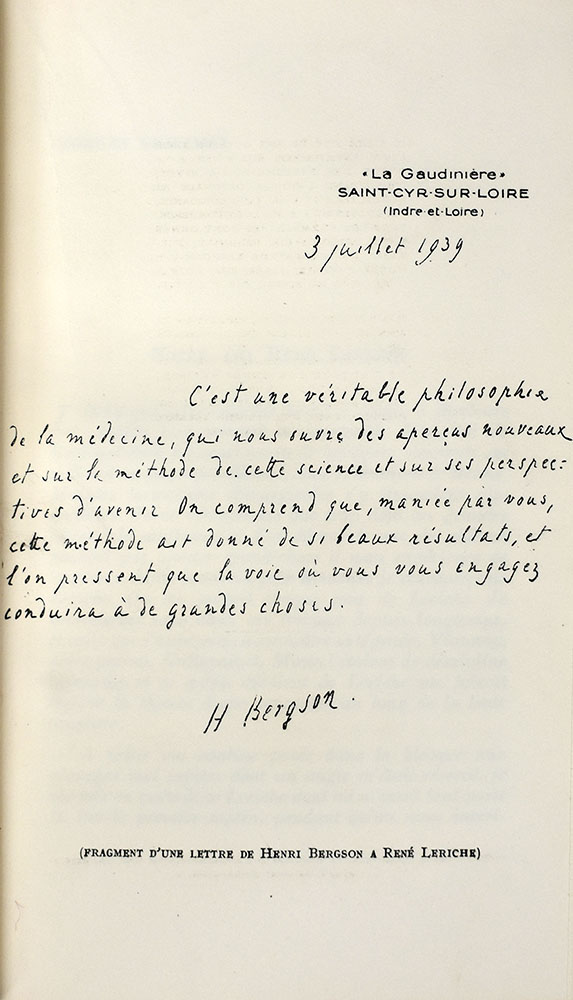 «La Gaudinière»
SAINT-CYR-SUR-LOIRE
(Indre-et-Loire)
3 juillet 1939
C'est une véritable philosophie
de la médecine, qui nous ouvre des aperçus nouveaux
et sur la méthode de cette science et sur ses perspec-
tives d'avenir. On comprend que, maniée par vous,
cette méthode ait donné de si beaux résultats, et
l'on pressent que la voie où vous vous engagez
conduira à de grandes choses.
H Bergson.
(FRAGMENT D'UNE LETTRE DE HENRI BERGSON A RENÉ LERICHE)